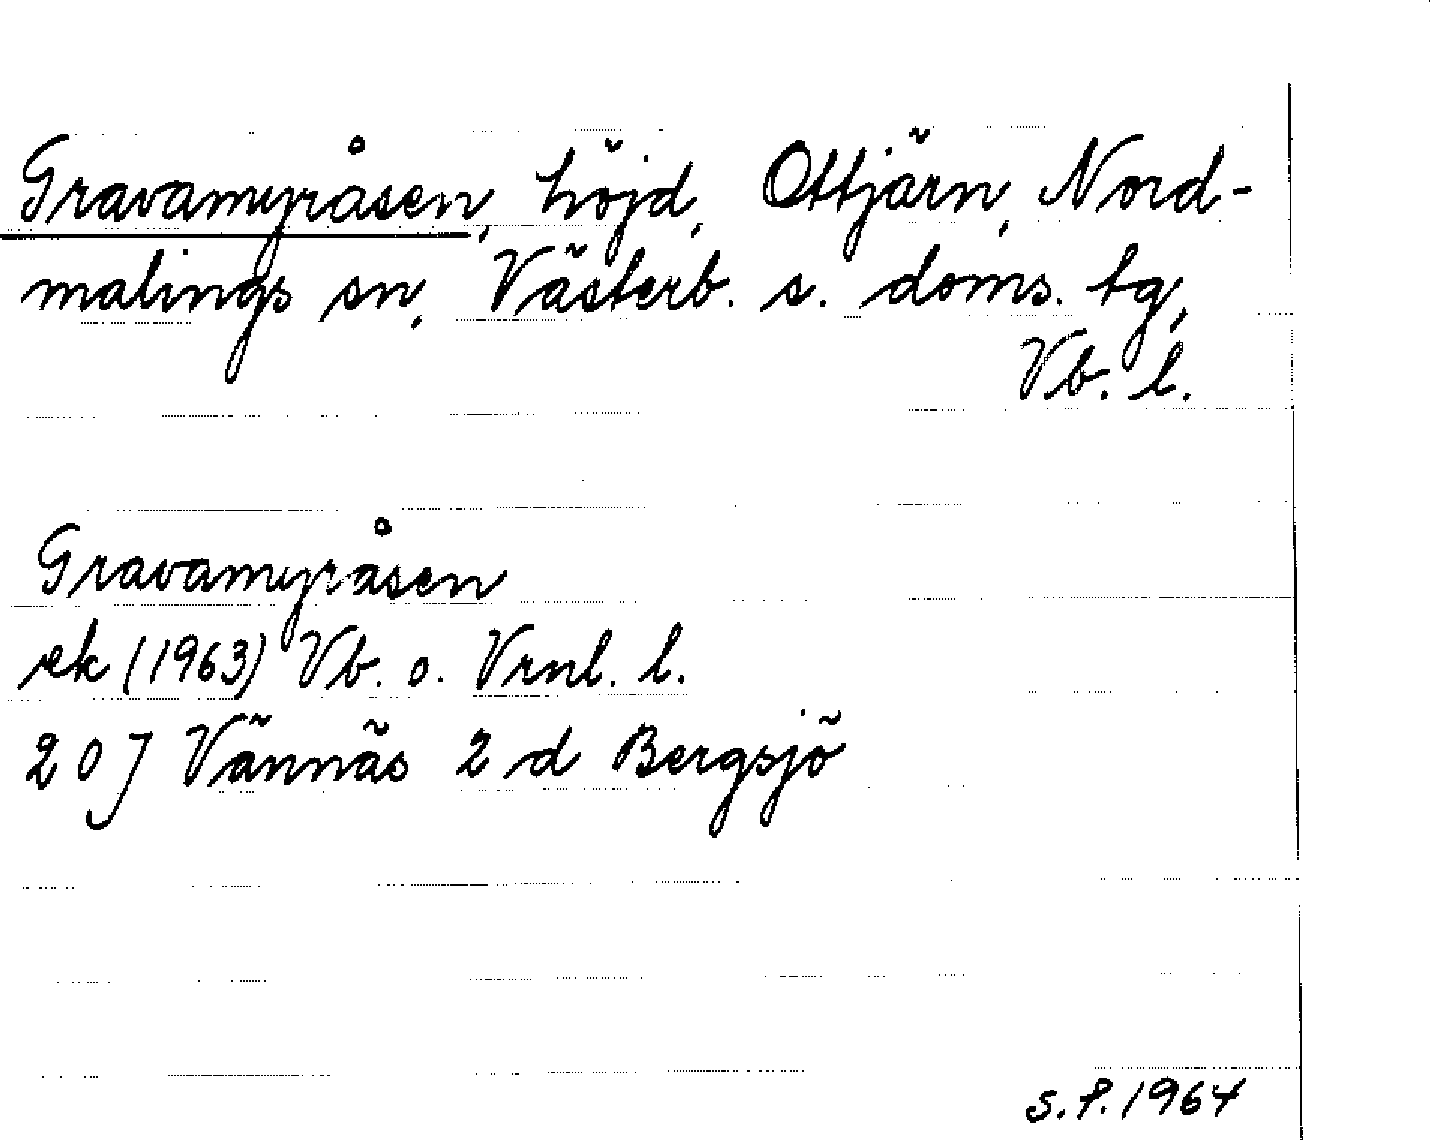 Gravamyråsen, höjd, Ottjärn, Nord-
malings sn, Västerb. s. doms. tg,
Vb. l.
Gravamyråsen
rek (1963) Vb. o. Vrnl. l.
20 J Vännäs 2 d Bergsjö
S. P. 1964